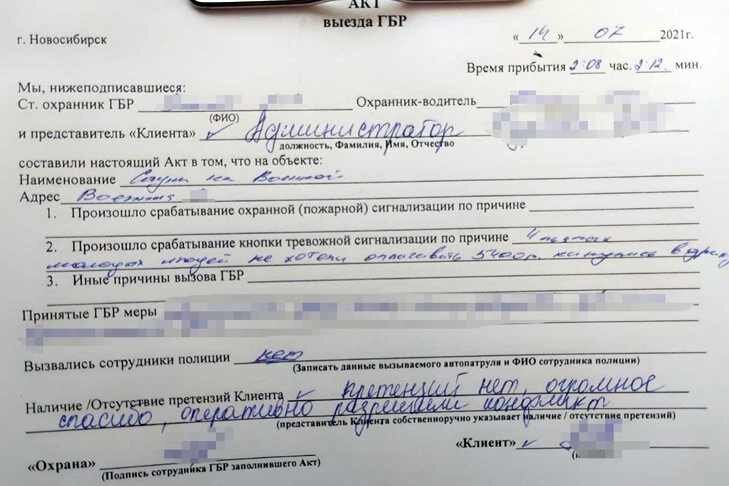 АКТ
выезда ГБР
г. Новосибирск « 14 » 07 2021г.
Время прибытия 2:08 час. 2:12 мин.
Мы, нижеподписавшиеся:
Ст. охранник ГБР Охранник-водитель
(ФИО)
и представитель «Клиента» Администратор
должность, Фамилия, Имя, Отчество
составили настоящий Акт в том, что на объекте:
Наименование Сауна на Военной
Адрес Военная
1. Произошло срабатывание охранной (пожарной) сигнализации по причине
2. Произошло срабатывание кнопки тревожной сигнализации по причине 4
молодых людей не хотели оплачивать 5400р. кинулись в драку
3. Иные причины вызова ГБР
Принятые ГБР меры
Вызвались сотрудники полиции нет
(Записать данные вызываемого автопатруля и ФИО сотрудника полиции)
Наличие /Отсутствие претензий Клиента претензий нет, огромное
спасибо, оперативно разрешили конфликт
(представитель Клиента собственноручно указывает наличие / отсутствие претензий)
«Охрана» «Клиент»
(Подпись сотрудника ГБР заполнившего Акт)